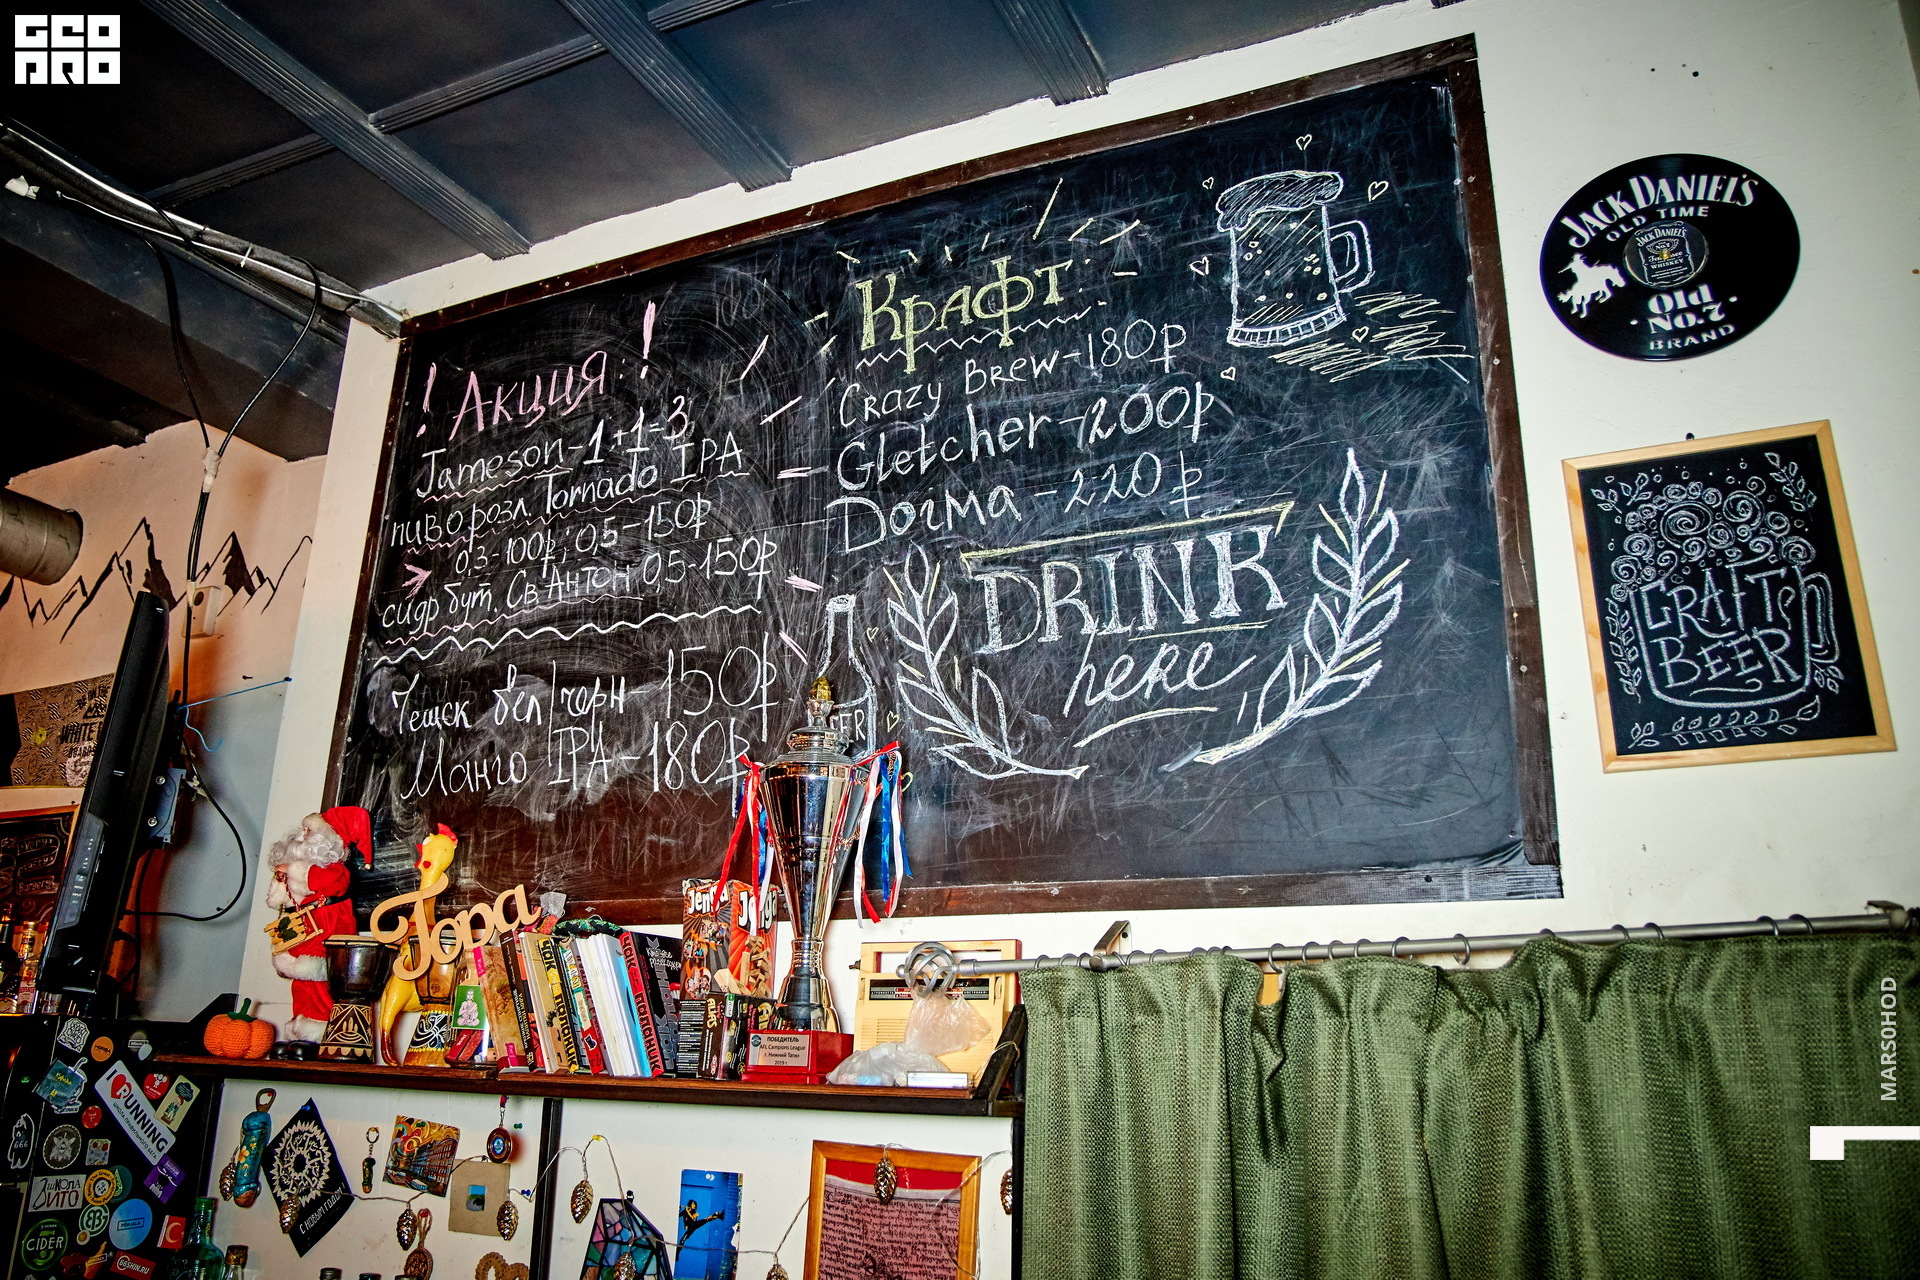 GEO
PRO
! Акция: !
Jameson-1+1=3
пиво розл. Tornado IPA
0,3-100₽; 0,5-150₽
сидр бут. Св Антон 0,5-150₽
Чешск бел/черн-150₽
Манго IPA-180₽
Крафт:
Crazy Brew-180₽
Gletcher-200₽
Догма-220₽
DRINK
here
JACK DANIEL'S
OLD TIME
JACK DANIEL'S
Tennessee
WHISKEY
Old
No.7
BRAND
CRAFT
BEER
Гора
Jenga
ЧАК ПАЛАНИК
ЧАК ПАЛАНИК
ПОБЕДИТЕЛЬ
AFL Campions League
г. Нижний Тагил
2019 г.
I RUNNING
666
ШКОЛА
CIDER
GGSHIN.RU
С НОВЫМ ГОДОМ
WHITE
MARSOHOD